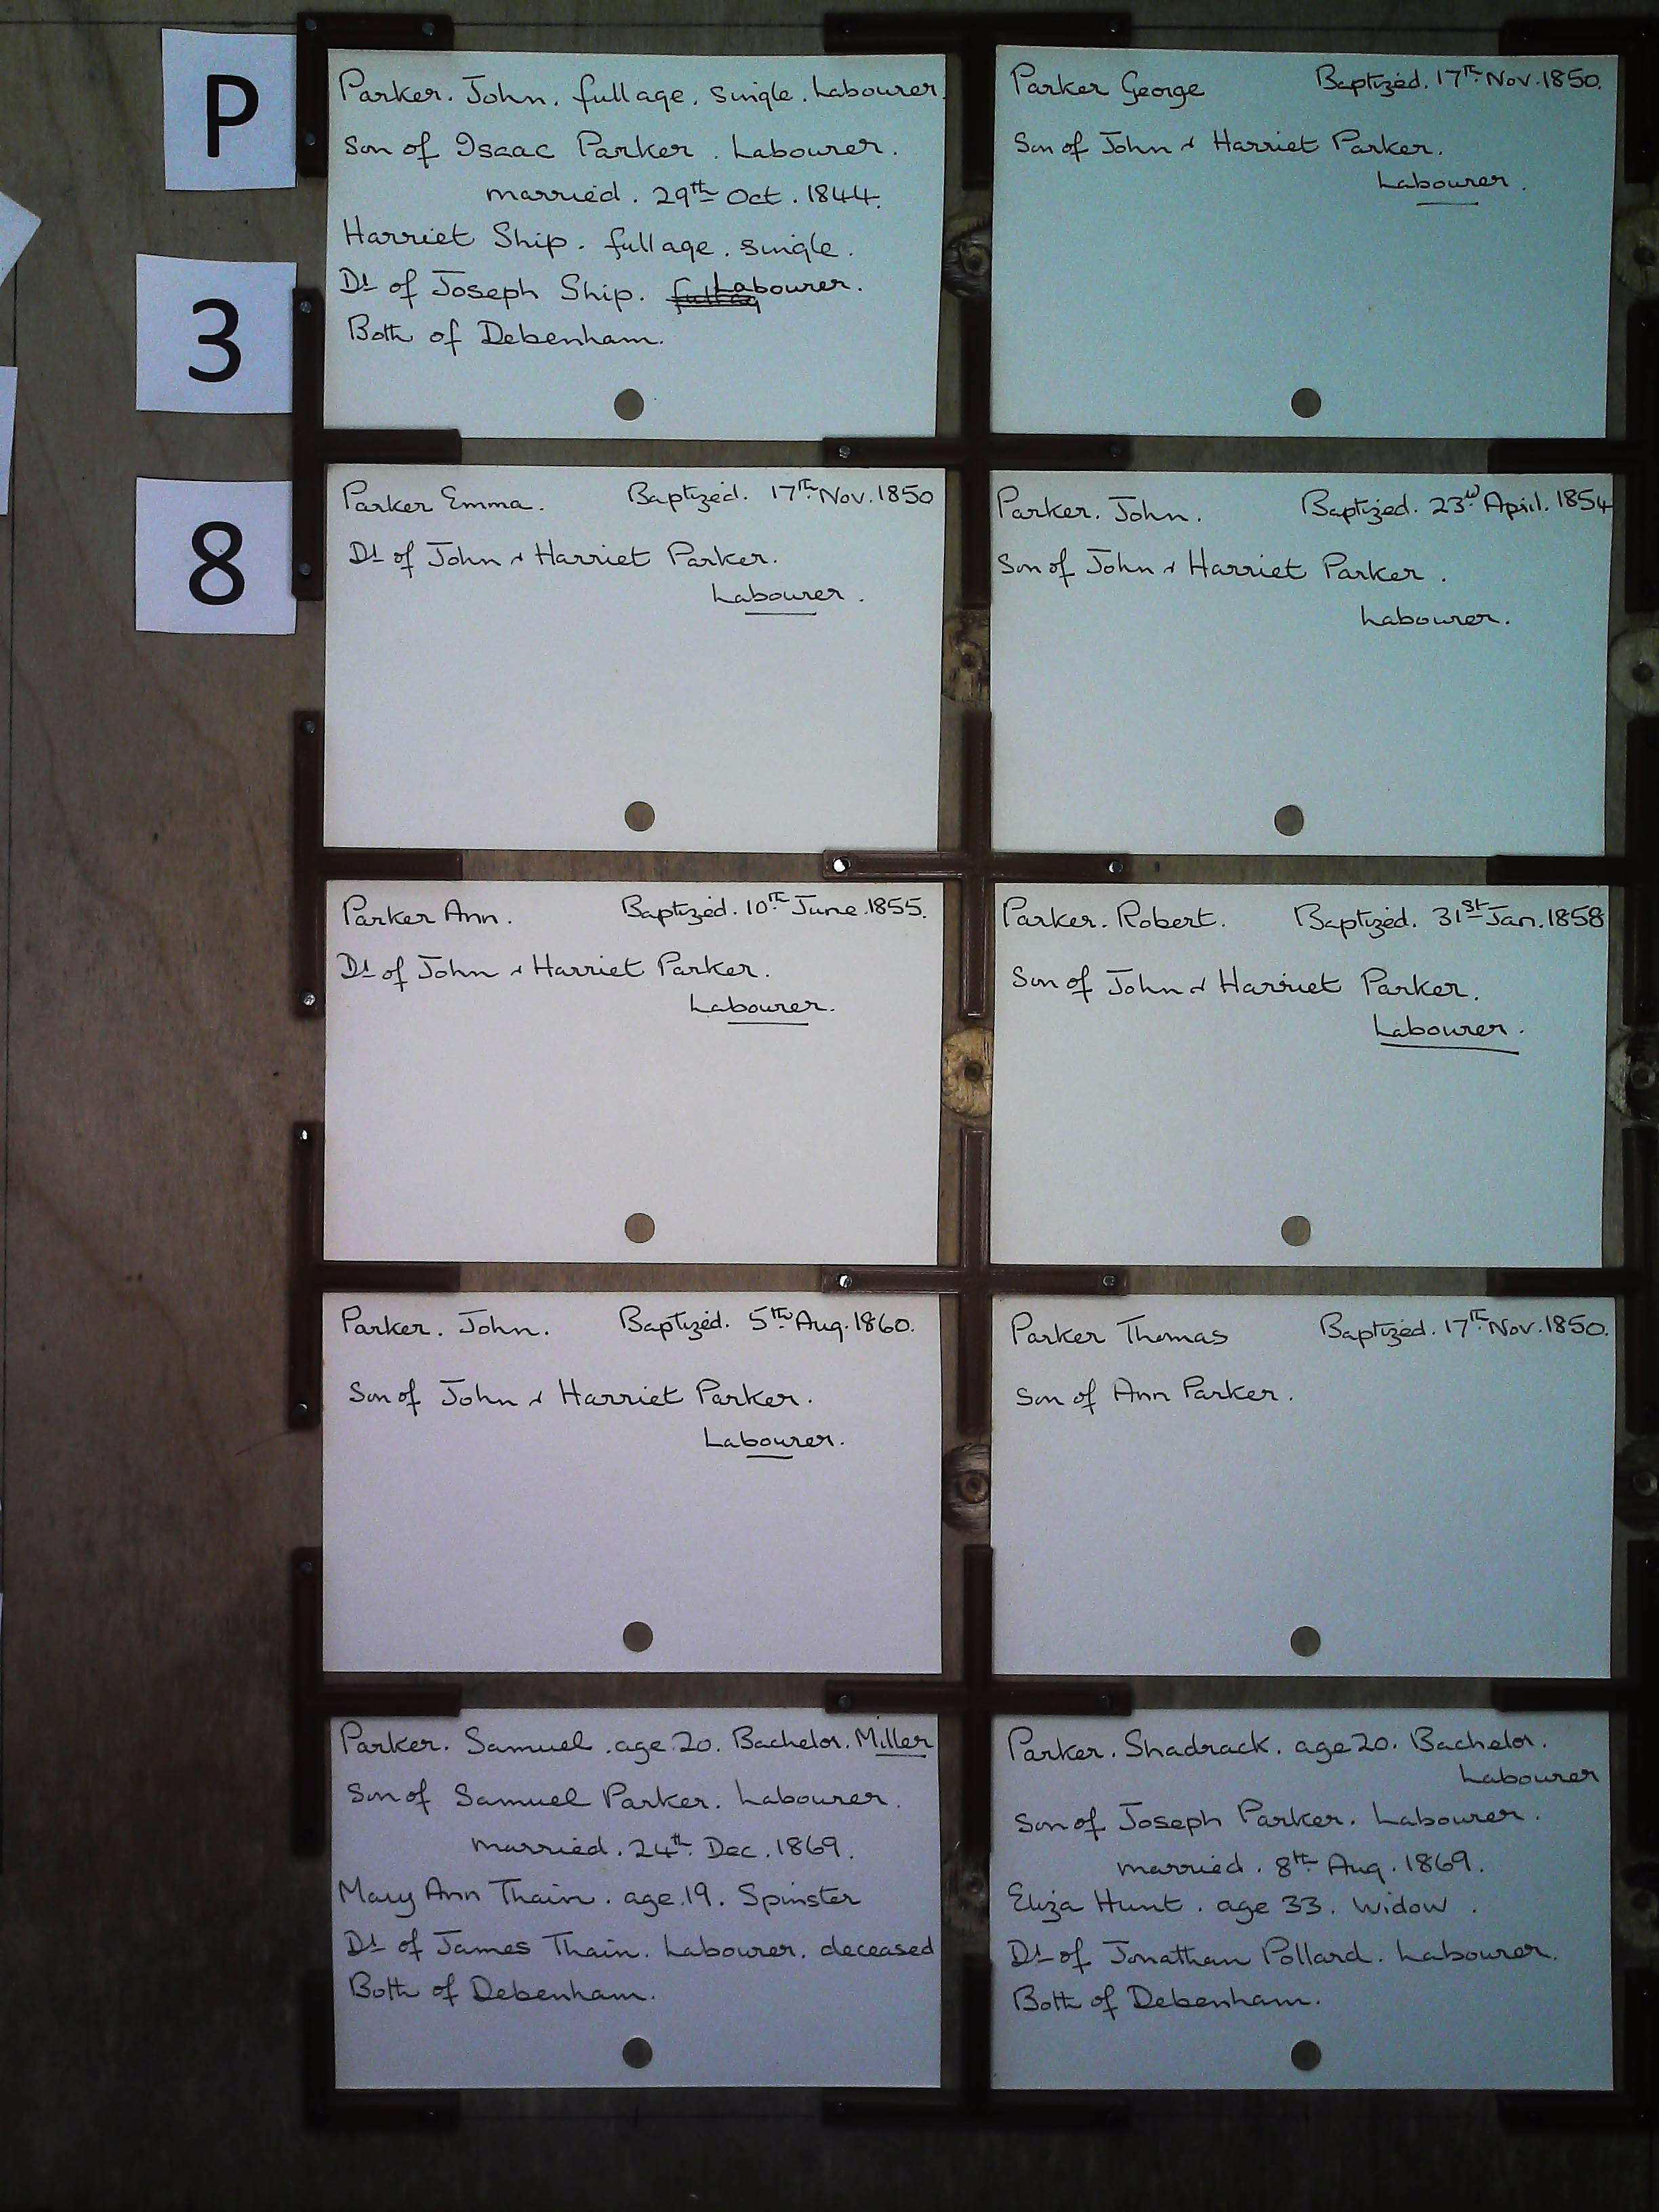 P
3
8
Parker. John. full age. single. Labourer.
Son of Isaac Parker. Labourer.
married. 29th Oct. 1844.
Harriet Ship. full age. single.
Dt of Joseph Ship. Labourer.
Both of Debenham.
Parker George Baptized. 17th Nov. 1850.
Son of John & Harriet Parker.
Labourer.
Parker Emma. Baptized. 17th Nov. 1850
Dt of John & Harriet Parker.
Labourer.
Parker. John. Baptized. 23rd April. 1854
Son of John & Harriet Parker.
Labourer.
Parker Ann. Baptized. 10th June. 1855.
Dt of John & Harriet Parker.
Labourer.
Parker. Robert. Baptized. 31st Jan. 1858
Son of John & Harriet Parker.
Labourer.
Parker. John. Baptized. 5th Aug. 1860.
Son of John & Harriet Parker.
Labourer.
Parker Thomas Baptized. 17th Nov. 1850.
Son of Ann Parker.
Parker. Samuel. age 20. Bachelor. Miller
Son of Samuel Parker. Labourer.
married. 24th Dec. 1869.
Mary Ann Thain. age 19. Spinster
Dt of James Thain. Labourer. deceased
Both of Debenham.
Parker. Shadrack. age 20. Bachelor.
Labourer
Son of Joseph Parker. Labourer.
married. 8th Aug. 1869.
Eliza Hunt. age 33. Widow.
Dt of Jonathan Pollard. Labourer.
Both of Debenham.